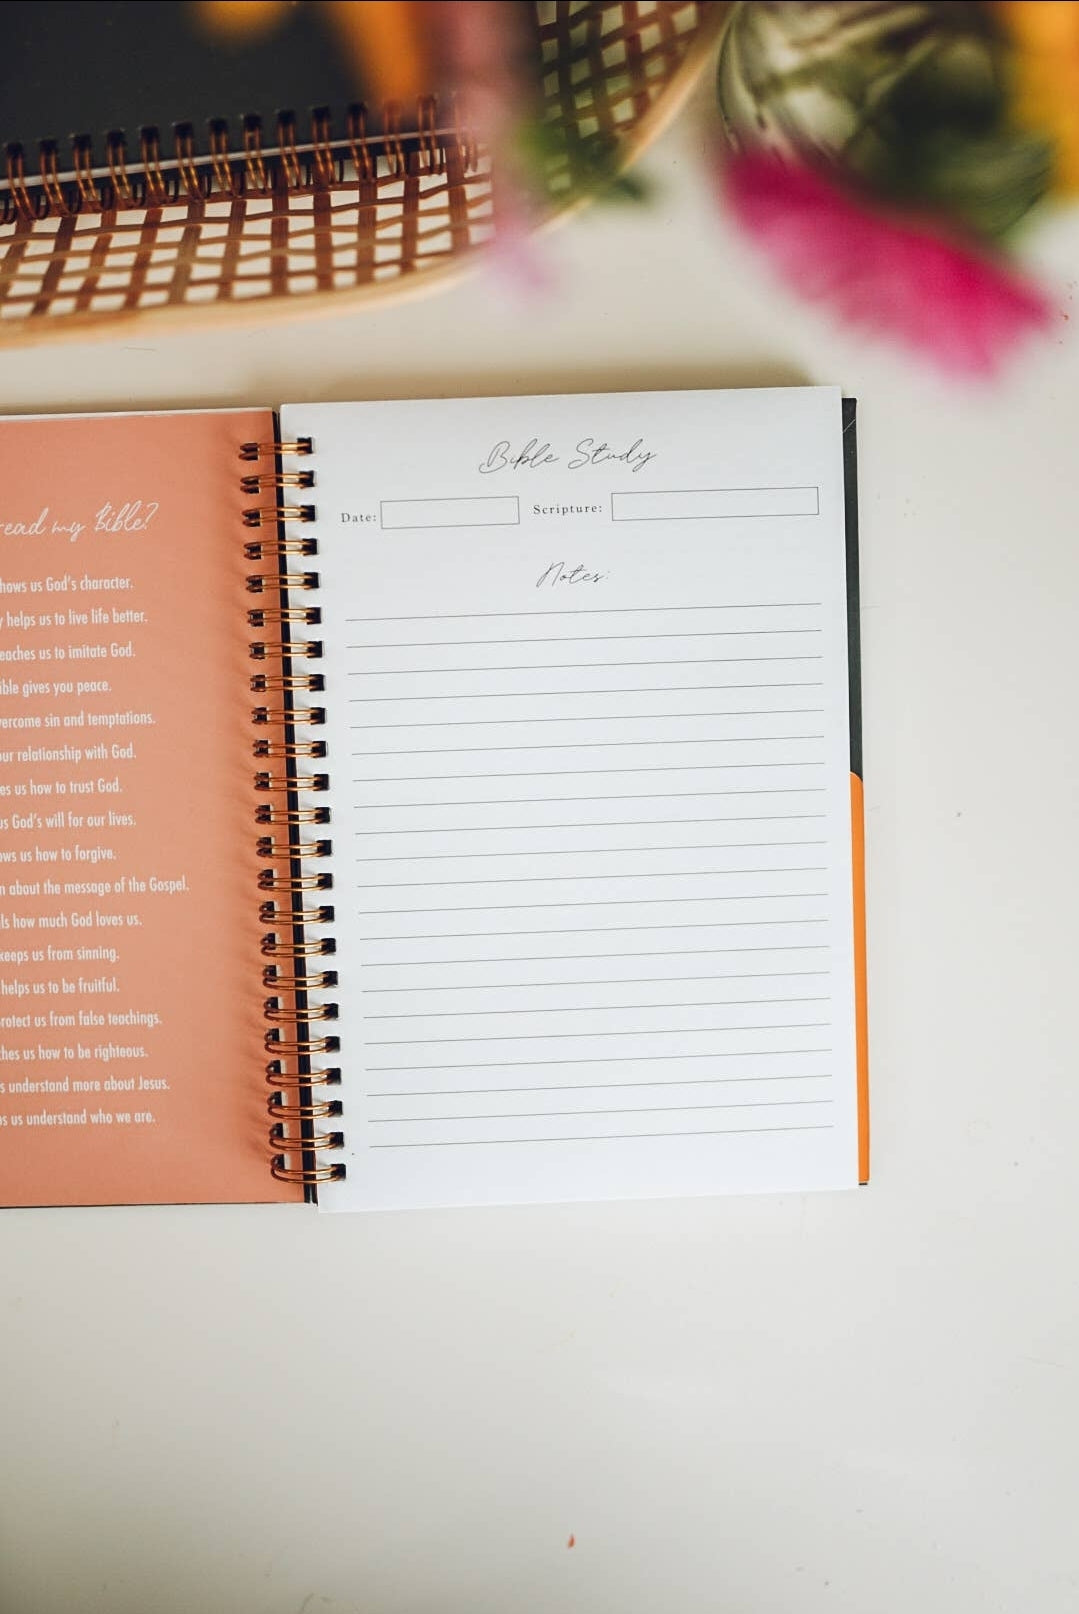 read my Bible?
hows us God's character.
y helps us to live life better.
eaches us to imitate God.
ible gives you peace.
vercome sin and temptations.
our relationship with God.
es us how to trust God.
us God's will for our lives.
ows us how to forgive.
n about the message of the Gospel.
ls how much God loves us.
keeps us from sinning.
helps us to be fruitful.
protect us from false teachings.
ches us how to be righteous.
s understand more about Jesus.
ps us understand who we are.
Bible Study
Date: Scripture:
Notes: